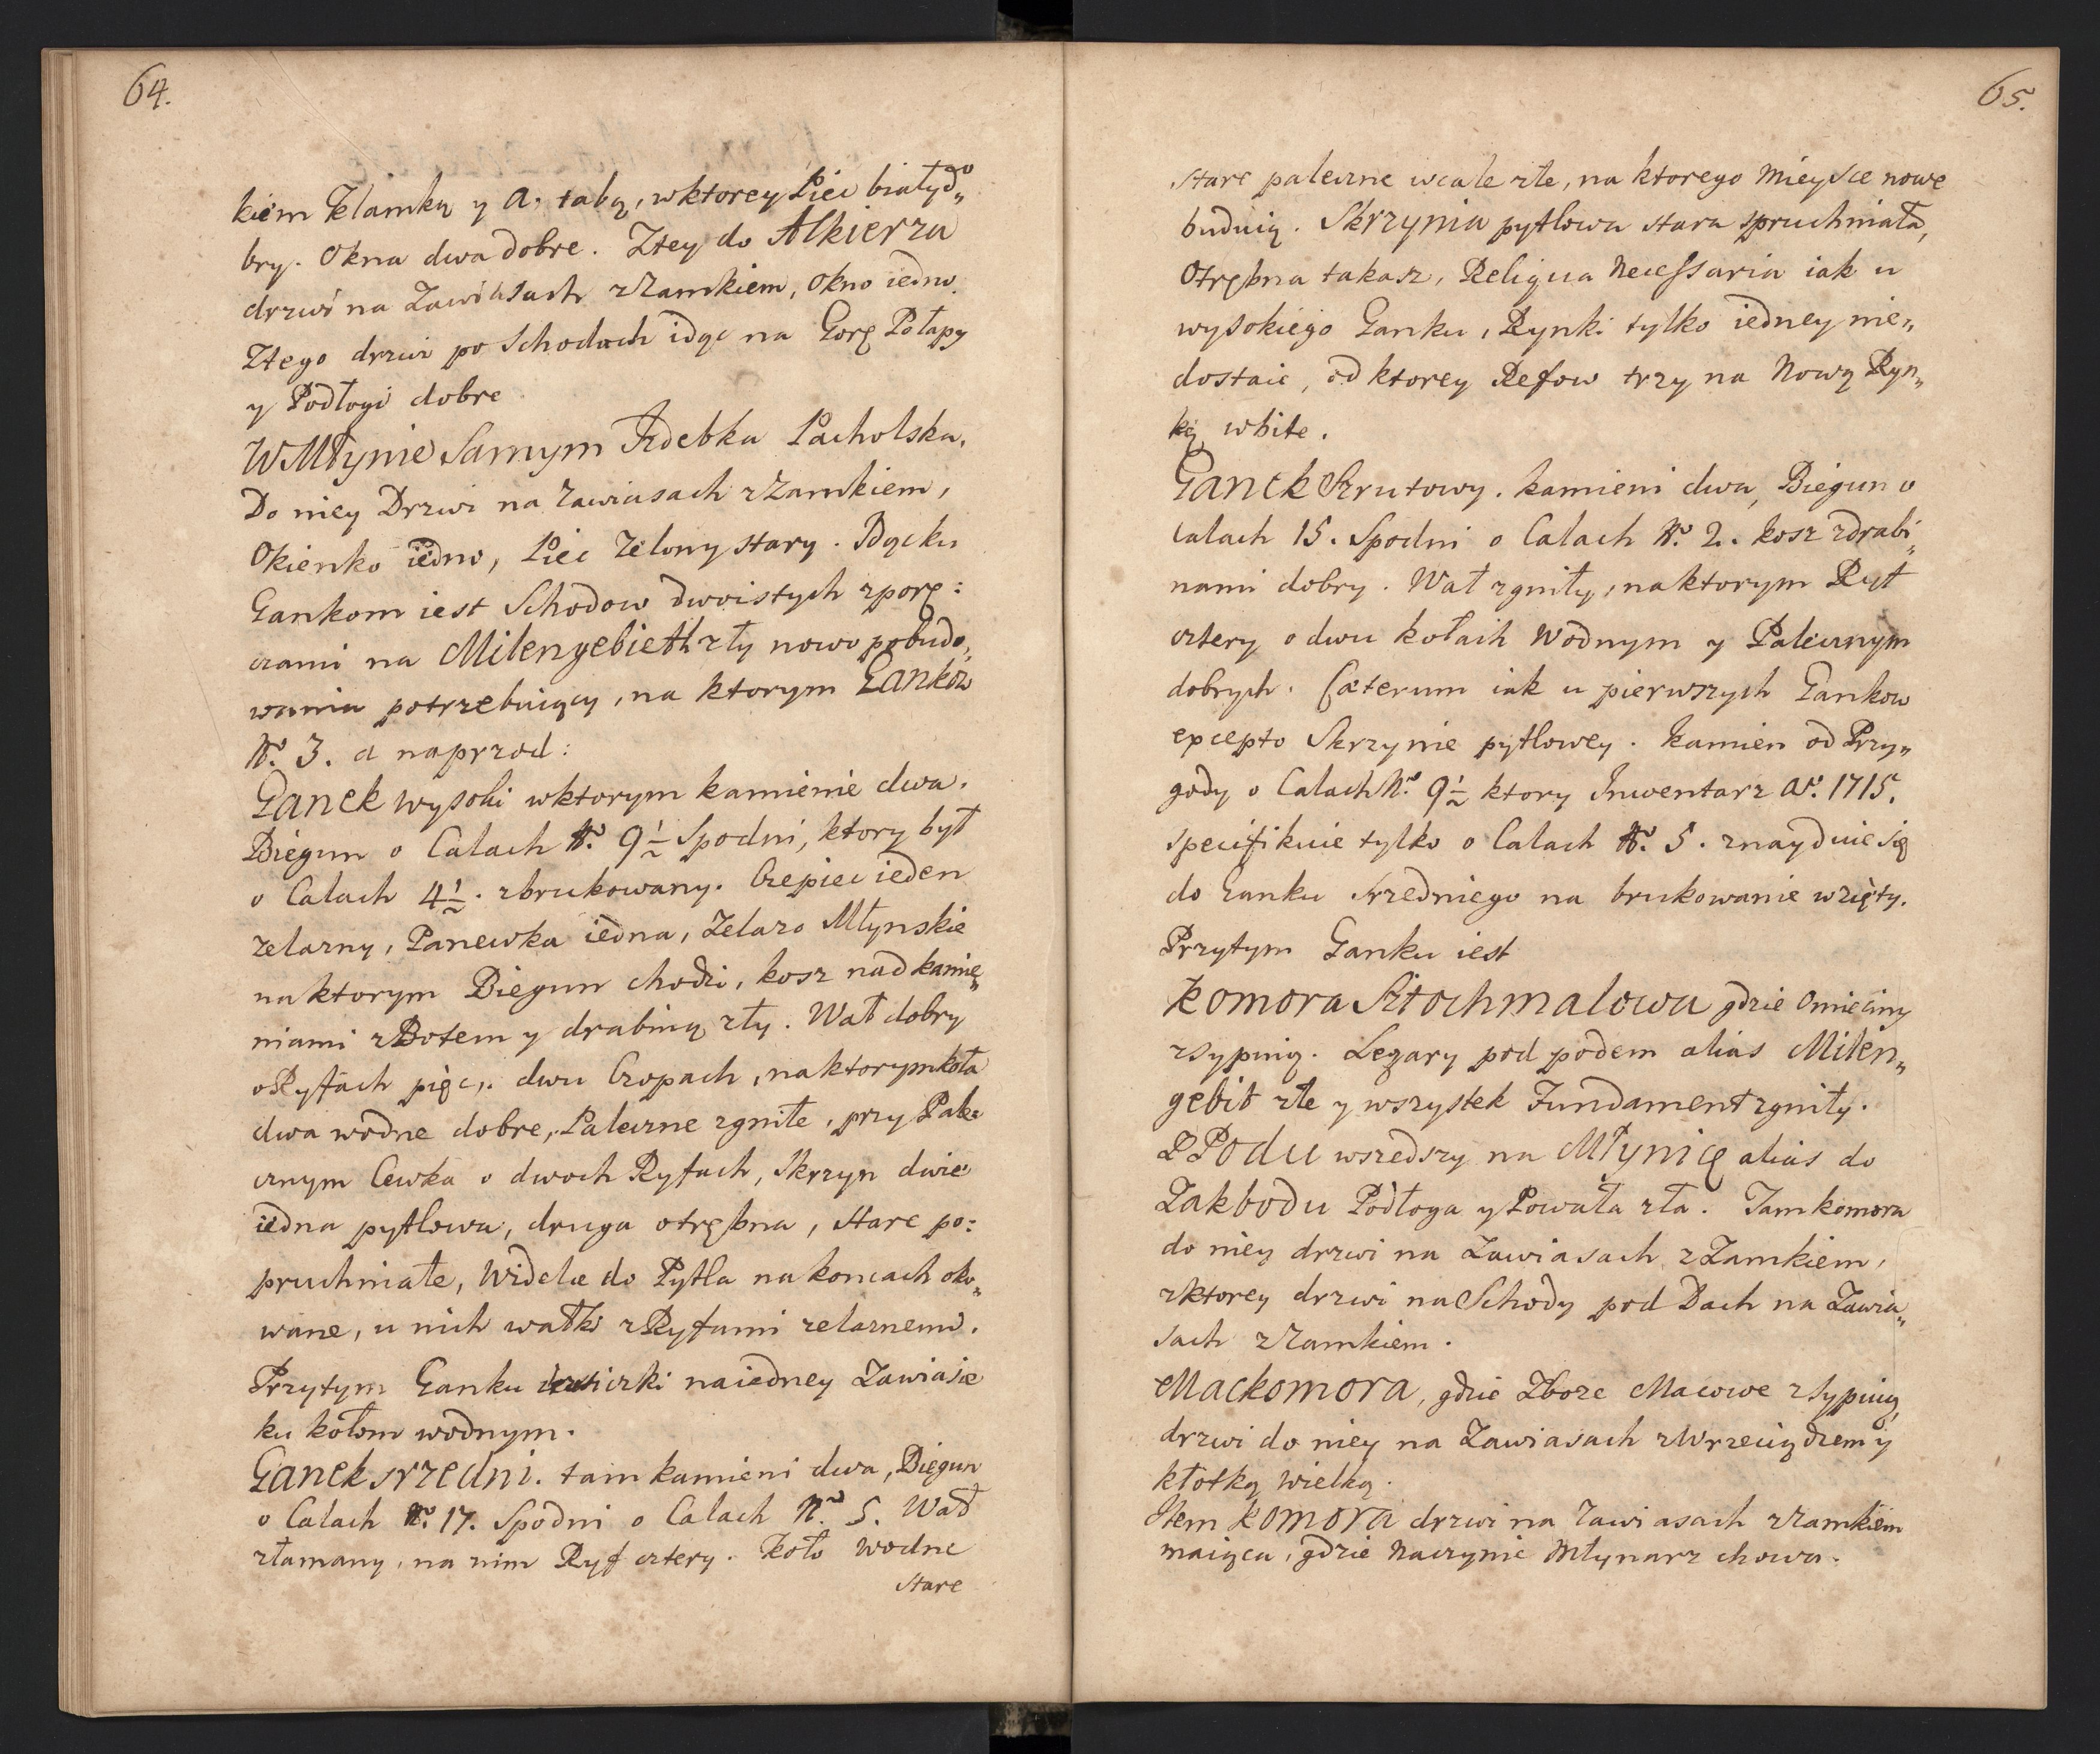 64.
kiem klamką y a. tabą, wktorey Piec biały do„
bry. Okna dwa dobre. Ztey do Alkierza
drzwi na Zawiasach zZamkiem, Okno iedno.
Ztego drzwi po Schodach idąc na Gorę Połapy
y Podłogi dobre
WMłynie Samym Izdebka Pacholska.
Do niey Drzwi na Zawiasach zZamkiem,
Okienko iedno, Piec Zelony stary. Idącku
Gankom iest Schodow dwoistych zporę:
czami na Milengebieth zły nowo pobudo„
wania potrzebuiący, na ktorym Gankow
No. 3. a naprzod:
Ganek wysoki wktorym kamienie dwa.
Biegun o Calach No. 9½ Spodni, ktory był
o Calach 4½. zbrukowany. Czepiec ieden
zelazny, Panewka iedna, Zelazo Młynskie
naktorym Biegun chodzi, kosz nad kamię„
niami zBotem y drabiną zły. Wał dobry
oRyfach pięc, dwu Czopach, naktorym koła
dwa wodne dobre, Paleczne zgniłe, przy Pale
cznym Cewka o dwoch Ryfach, Skrzyn dwie
iedna pytlowa, druga otrębna, stare po:
pruchniałe, Widelce do Pytla na koncach oko„
wane, u nich wałki zRyfami zelaznemi.
Przytym Ganku drzwiczki naiedney Zawiasie
ku kołom wodnym.
Ganek srzedni. tam kamieni dwa, Biegun
o Calach No. 17. Spodni o Calach No. 5. Wał
złamany, na nim Ryf cztery. Koło wodne
stare
65.
stare paleczne wcale złe, na ktorego Mieysce nowe
buduią. Skrzynia pytlowa stara spruchniała,
Otrębna takasz, Reliqua Necessaria iak u
wysokiego Ganku, Rynki tylko iedney nie„
dostaie, od ktorey Refow trzy na Nową Ryn„
kę wbite.
Ganek Szrutowy. kamieni dwa, Biegun o
calach 15. Spodni o Calach No. 2. kosz zdrabi„
nami dobry. Wał zgniły, naktorym Ryf
cztery o dwu kołach Wodnym y Palecznym
dobrych. Cæterum iak u pierwszych Gankow
excepto Skrzynie pytlowey. Kamien od Przy„
gody o Calach No. 9½ ktory Inwentarz Ao. 1715.
specifikuie tylko o Calach No. 5. znayduie się
do Ganku srzedniego na brukowanie wzięty.
Przytym Ganku iest
Komora Sztochmalowa gdzie Omieciny
zsypuią. Legary pod podem alias Milen„
gebit złe y wszystek Fundament zgniły.
ZPodu wszedszy na Młynicę alias do
Zakbodu Podłoga y Powała zła. Tam komora
do niey drzwi na Zawiasach zZamkiem,
zktorey drzwi na Schody pod Dach na Zawia„
sach zZamkiem.
Mackomora, gdzie Zboze Macowe zsypuią,
drzwi do niey na Zawiasach zWrzeciądzem y
kłotką wielką.
Item Komora drzwi na Zawiasach zZamkiem
maiąca, gdzie Naczynie Młynarz chowa.